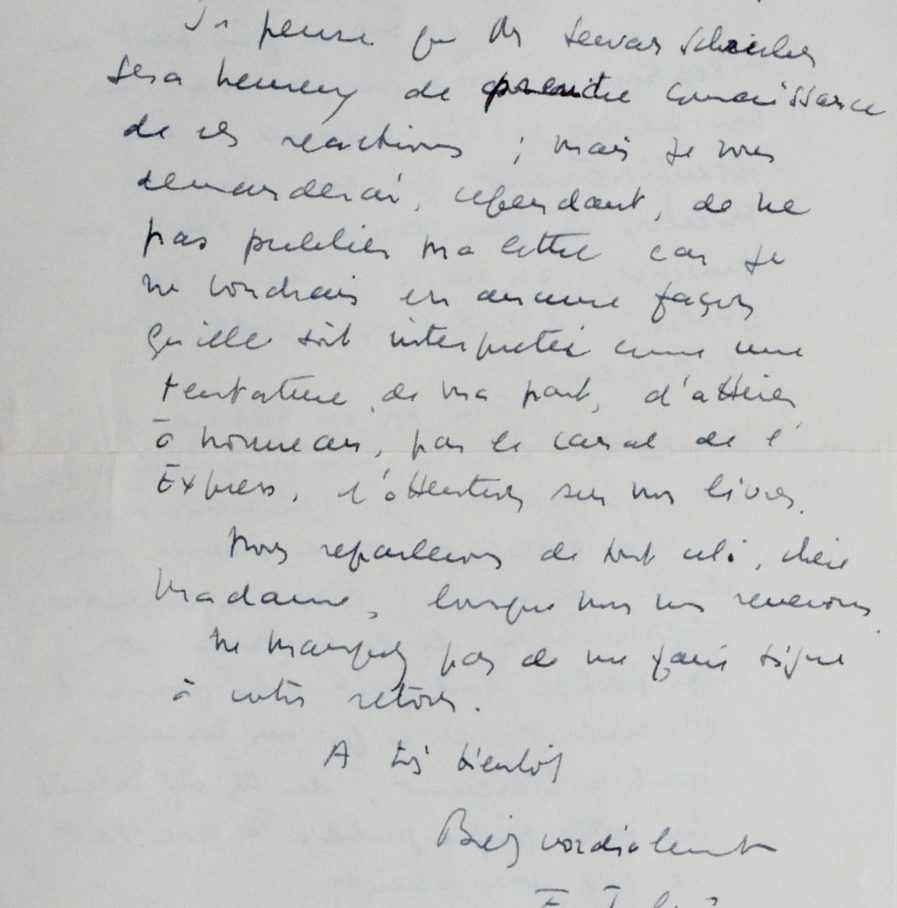 Je pense que Mr Servan Schreiber
sera heureux de prendre connaissance
de ces réactions ; mais je vous
demanderai, cependant, de ne
pas publier ma lettre car je
ne voudrais en aucune façon
qu'elle soit interprétée comme une
tentative, de ma part, d'attirer
à nouveau, par le canal de l'
Express, l'attention sur mes livres.
Nous reparlerons de tout cela, chère
Madame, lorsque nous nous reverrons.
Ne manquez pas de me faire signe
à votre retour.
A très bientôt
Bien cordialement